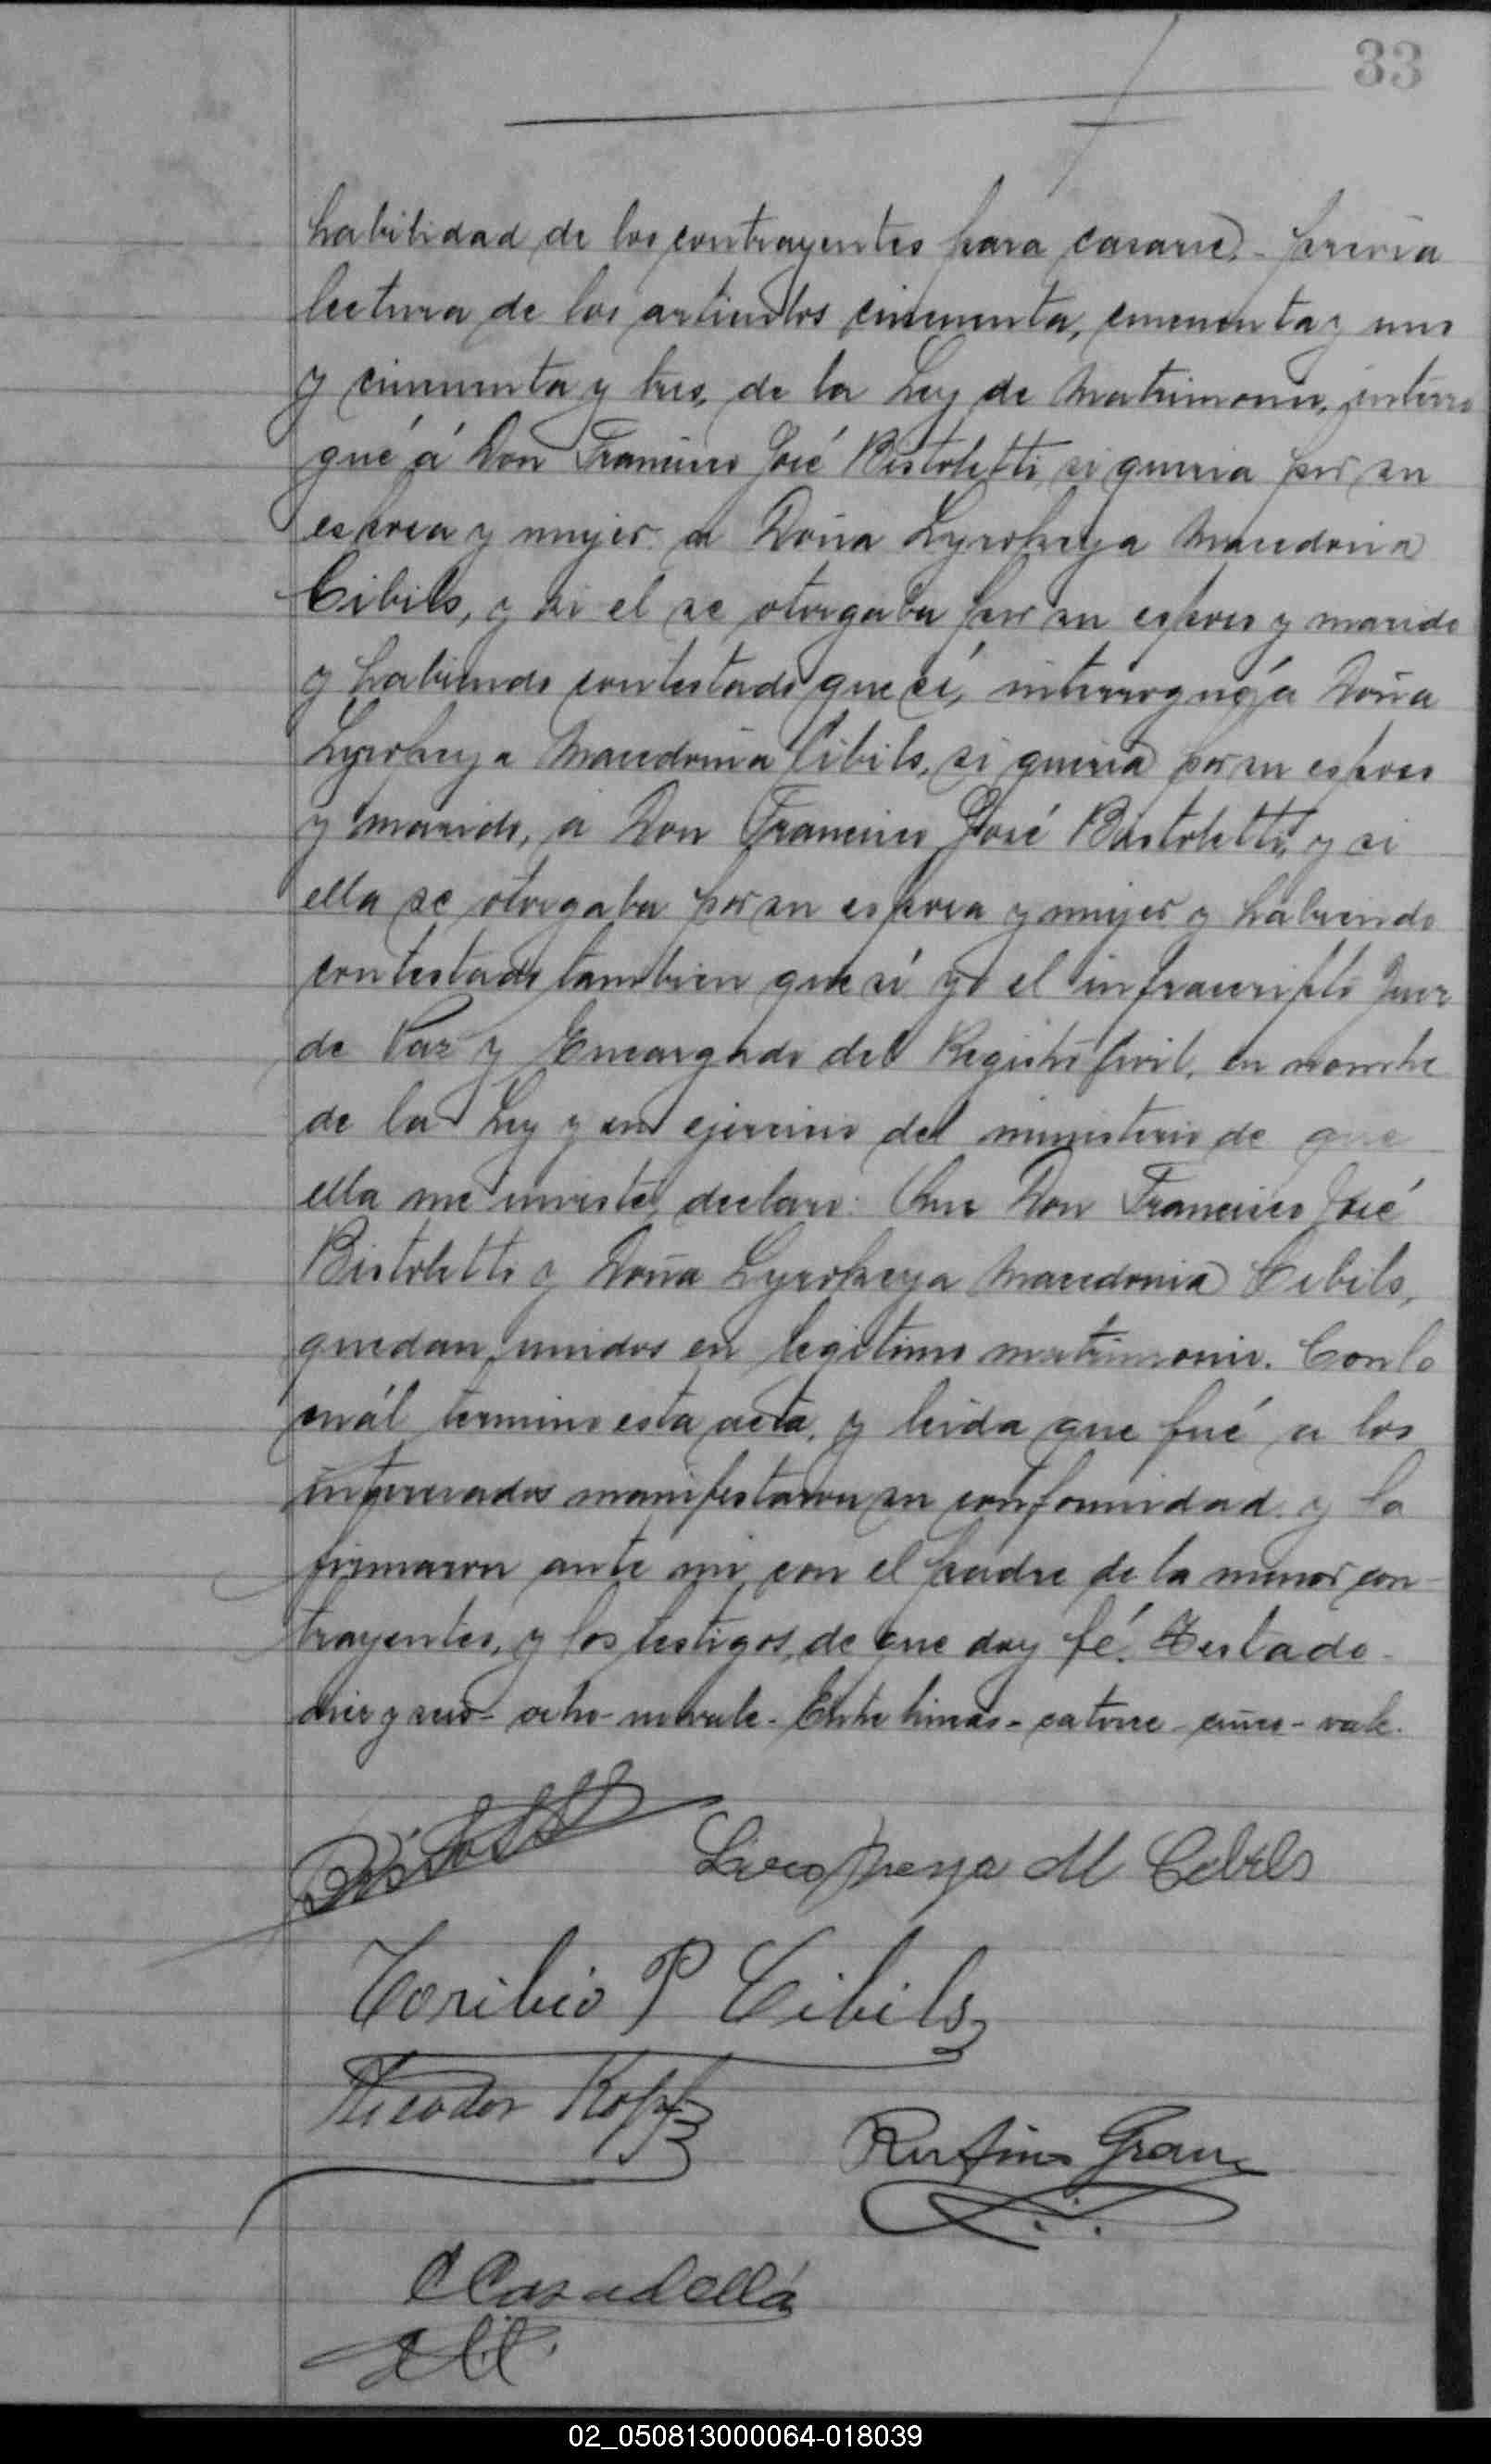 33
habilidad de los contrayentes para casarse, - previa
lectura de los articulos cincuenta, cincuenta y uno
y cincuenta y tres, de la Ley de Matrimonio, interro
gué á Don Francisco José Bistoletti, si queria por su
esposa y mujer a Doña Lyropeya Macedonia
Cibils, y si el se otorgaba por su esposo y marido
y habiendo contestado que sí, interrogué á Doña
Lyropeya Macedonia Cibils, si queria por su esposo
y marido, á Don Francisco José Bistoletti, y si
ella se otorgaba por su esposa y mujer y habiendo
contestado tambien que sí yo el infrascripto Juez
de Paz y Encargado del Registro Civil, en nombre
de la Ley y en ejercicio del ministerio de que
ella me inviste, declaro: Que Don Francisco José
Bistoletti y Doña Lyropeya Macedonia Cibils,
quedan unidos en legitimo matrimonio. Con lo
cuál termino esta acta, y leida que fué a los
interesados manifestaron su conformidad y la
firmaron ante mi, con el padre de la menor con-
trayentes, y los testigos, de que doy fé. Testado
diez y seis - ocho - no vale - Entre lineas - catorce - cinco - vale.
Bistoletti
Liropeya M Cibils
Toribio P Cibils
Theodor Kopf
Rufino Grau
C Casadellá
02_050813000064-018039